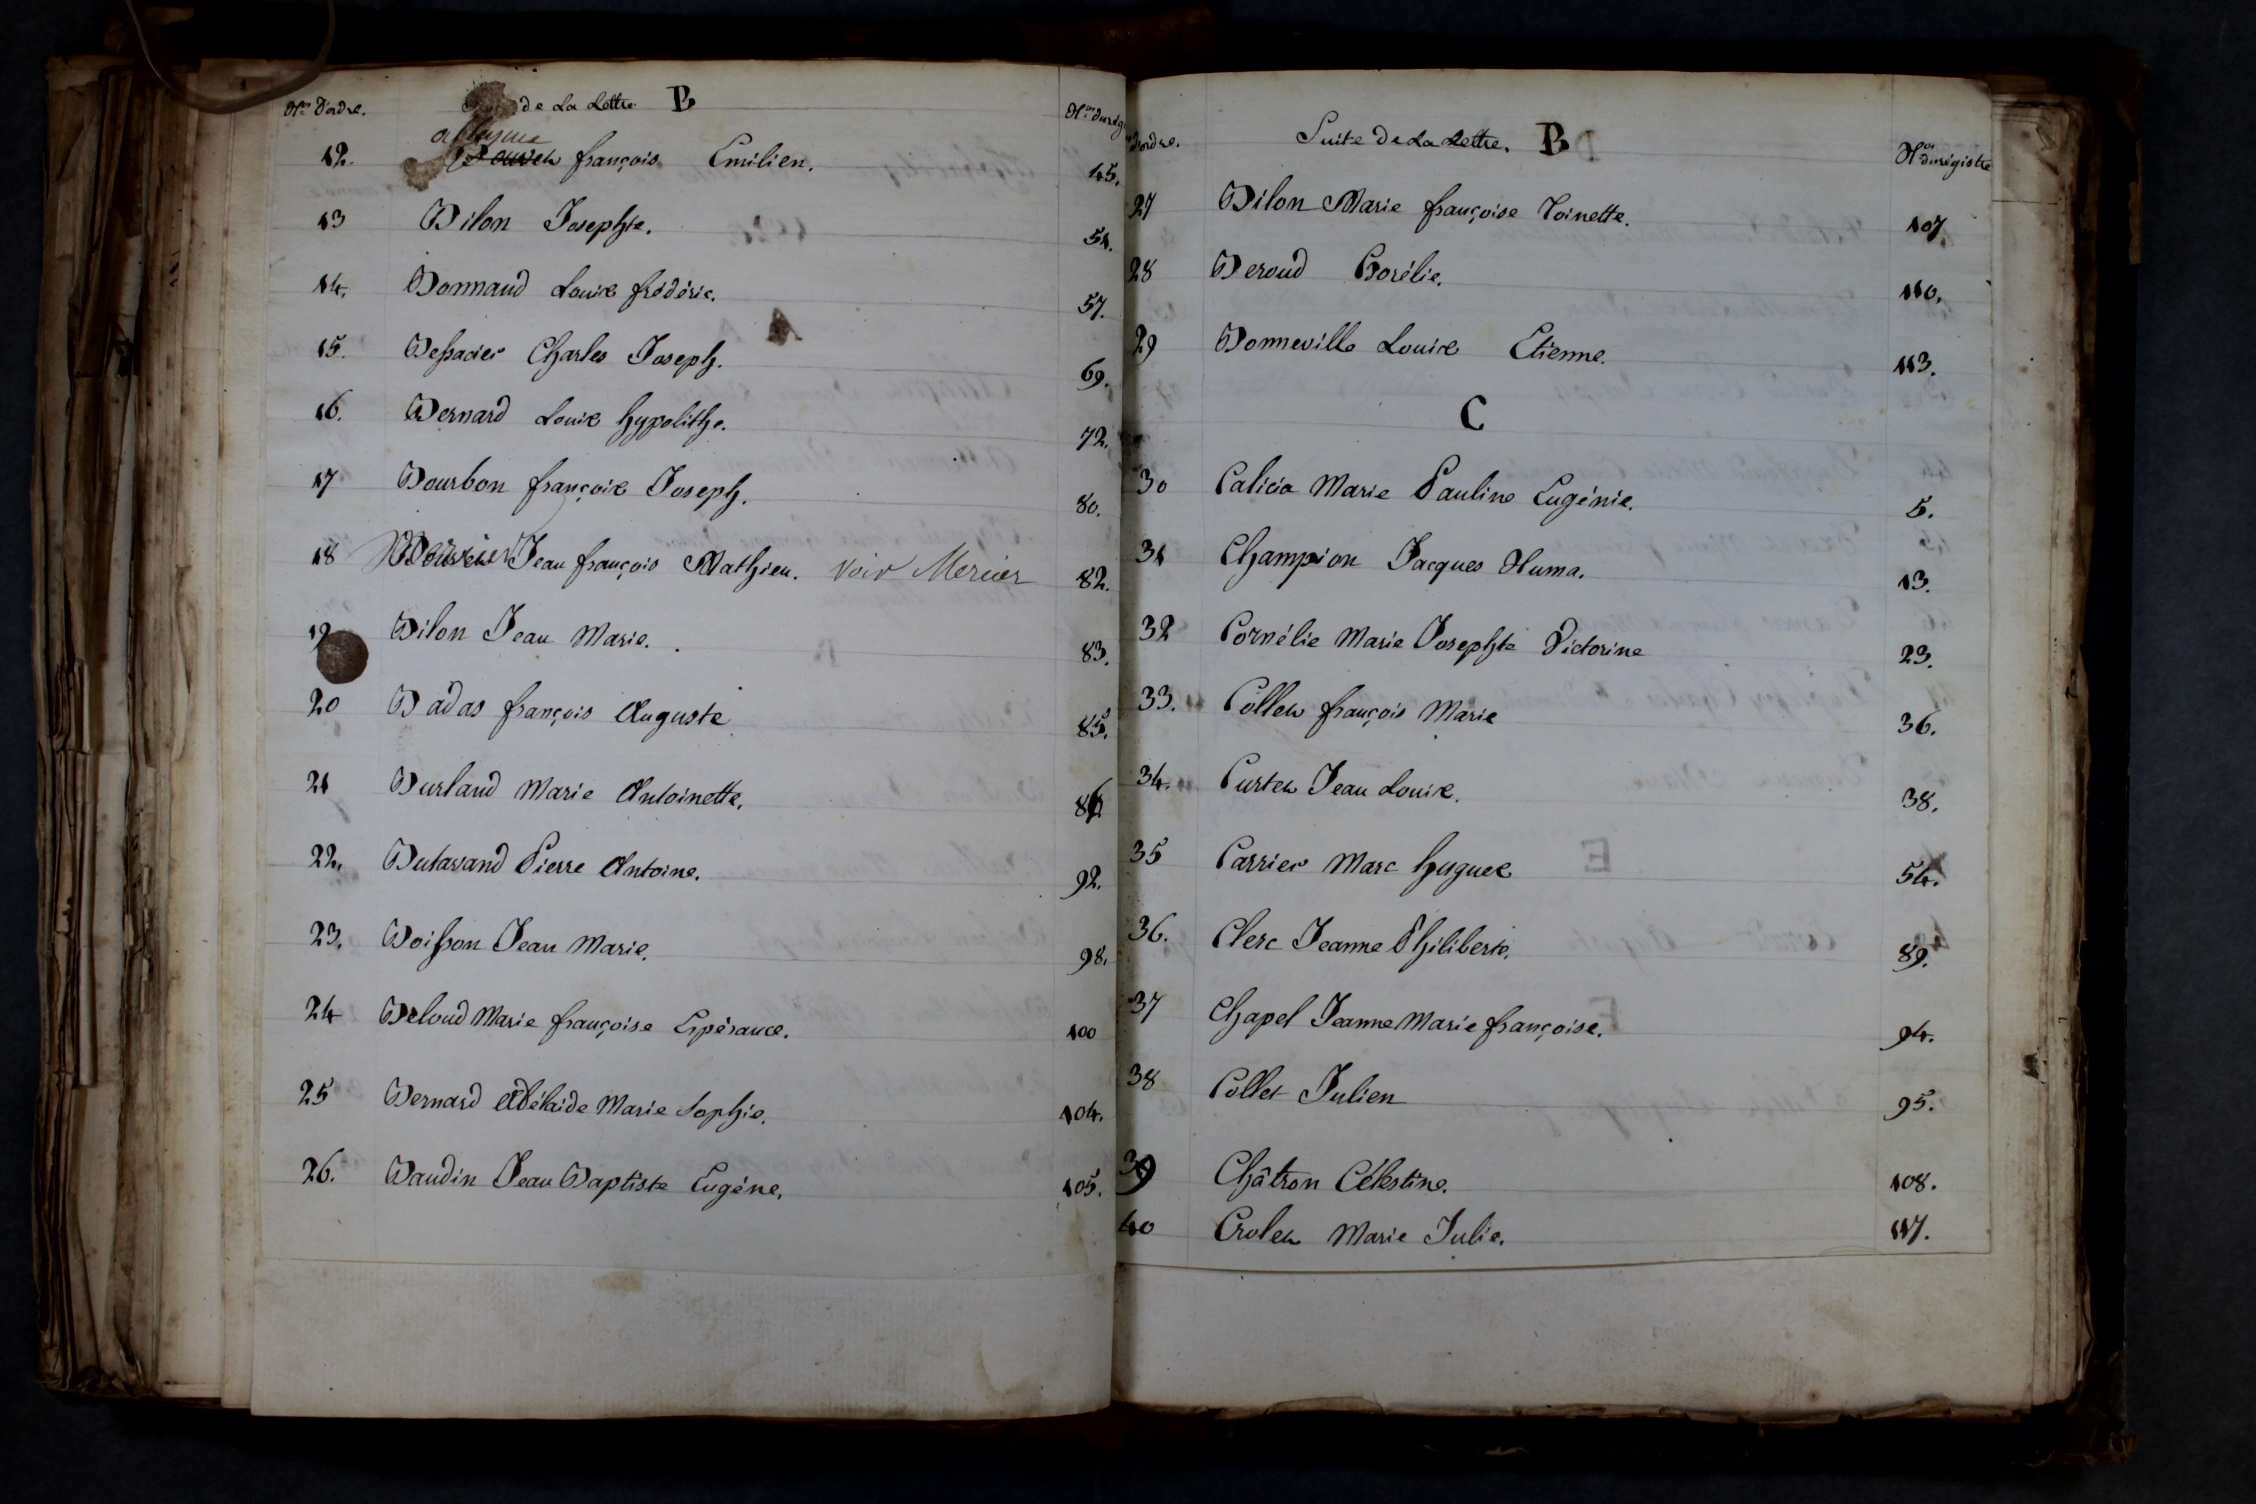 Nos D'ordre. de La Lettre B Nos du régistre
12. françois Emilien. 45.
13 Bilon Josephte. 51.
14. Bonnand Louis frédéric. 57.
15. Bessacier Charles Joseph. 69.
16. Bernard Louis hypolithe. 72.
17 Bourbon françois Joseph. 80.
18 Jean françois Mathieu. voir Mercier 82.
19 Bilon Jean Marie. 83.
20 Badas françois Auguste 85.
21 Burland Marie Antoinette. 86
22. Butavand Pierre Antoine. 92.
23. Boisson Jean Marie. 98.
24 Beloud Marie françoise Espérance. 100
25 Bernard Adélaide Marie Sophie. 104.
26. Baudin Jean Baptiste Eugéne. 105.
d'ordre. Suite De La Lettre. B Nos du régistre
27 Bilon Marie françoise Toinette. 107
28 Beroud Borélie. 110.
29 Bonneville Louis Etienne. 113.
C
30 Calicia Marie Pauline Eugénie. 5.
31 Champion Jacques Numa. 13.
32 Cornélie Marie Josephte Victorine 23.
33. Collet françois Marie 36.
34. Curtet Jean Louis. 38.
35 Carrier Marc hugues 54.
36. Clerc Jeanne Philiberte. 89.
37 Chapel Jeanne Marie françoise. 94.
38 Collet Julien 95.
39 Châtron Célestine. 108.
40 Crolet Marie Julie. 117.